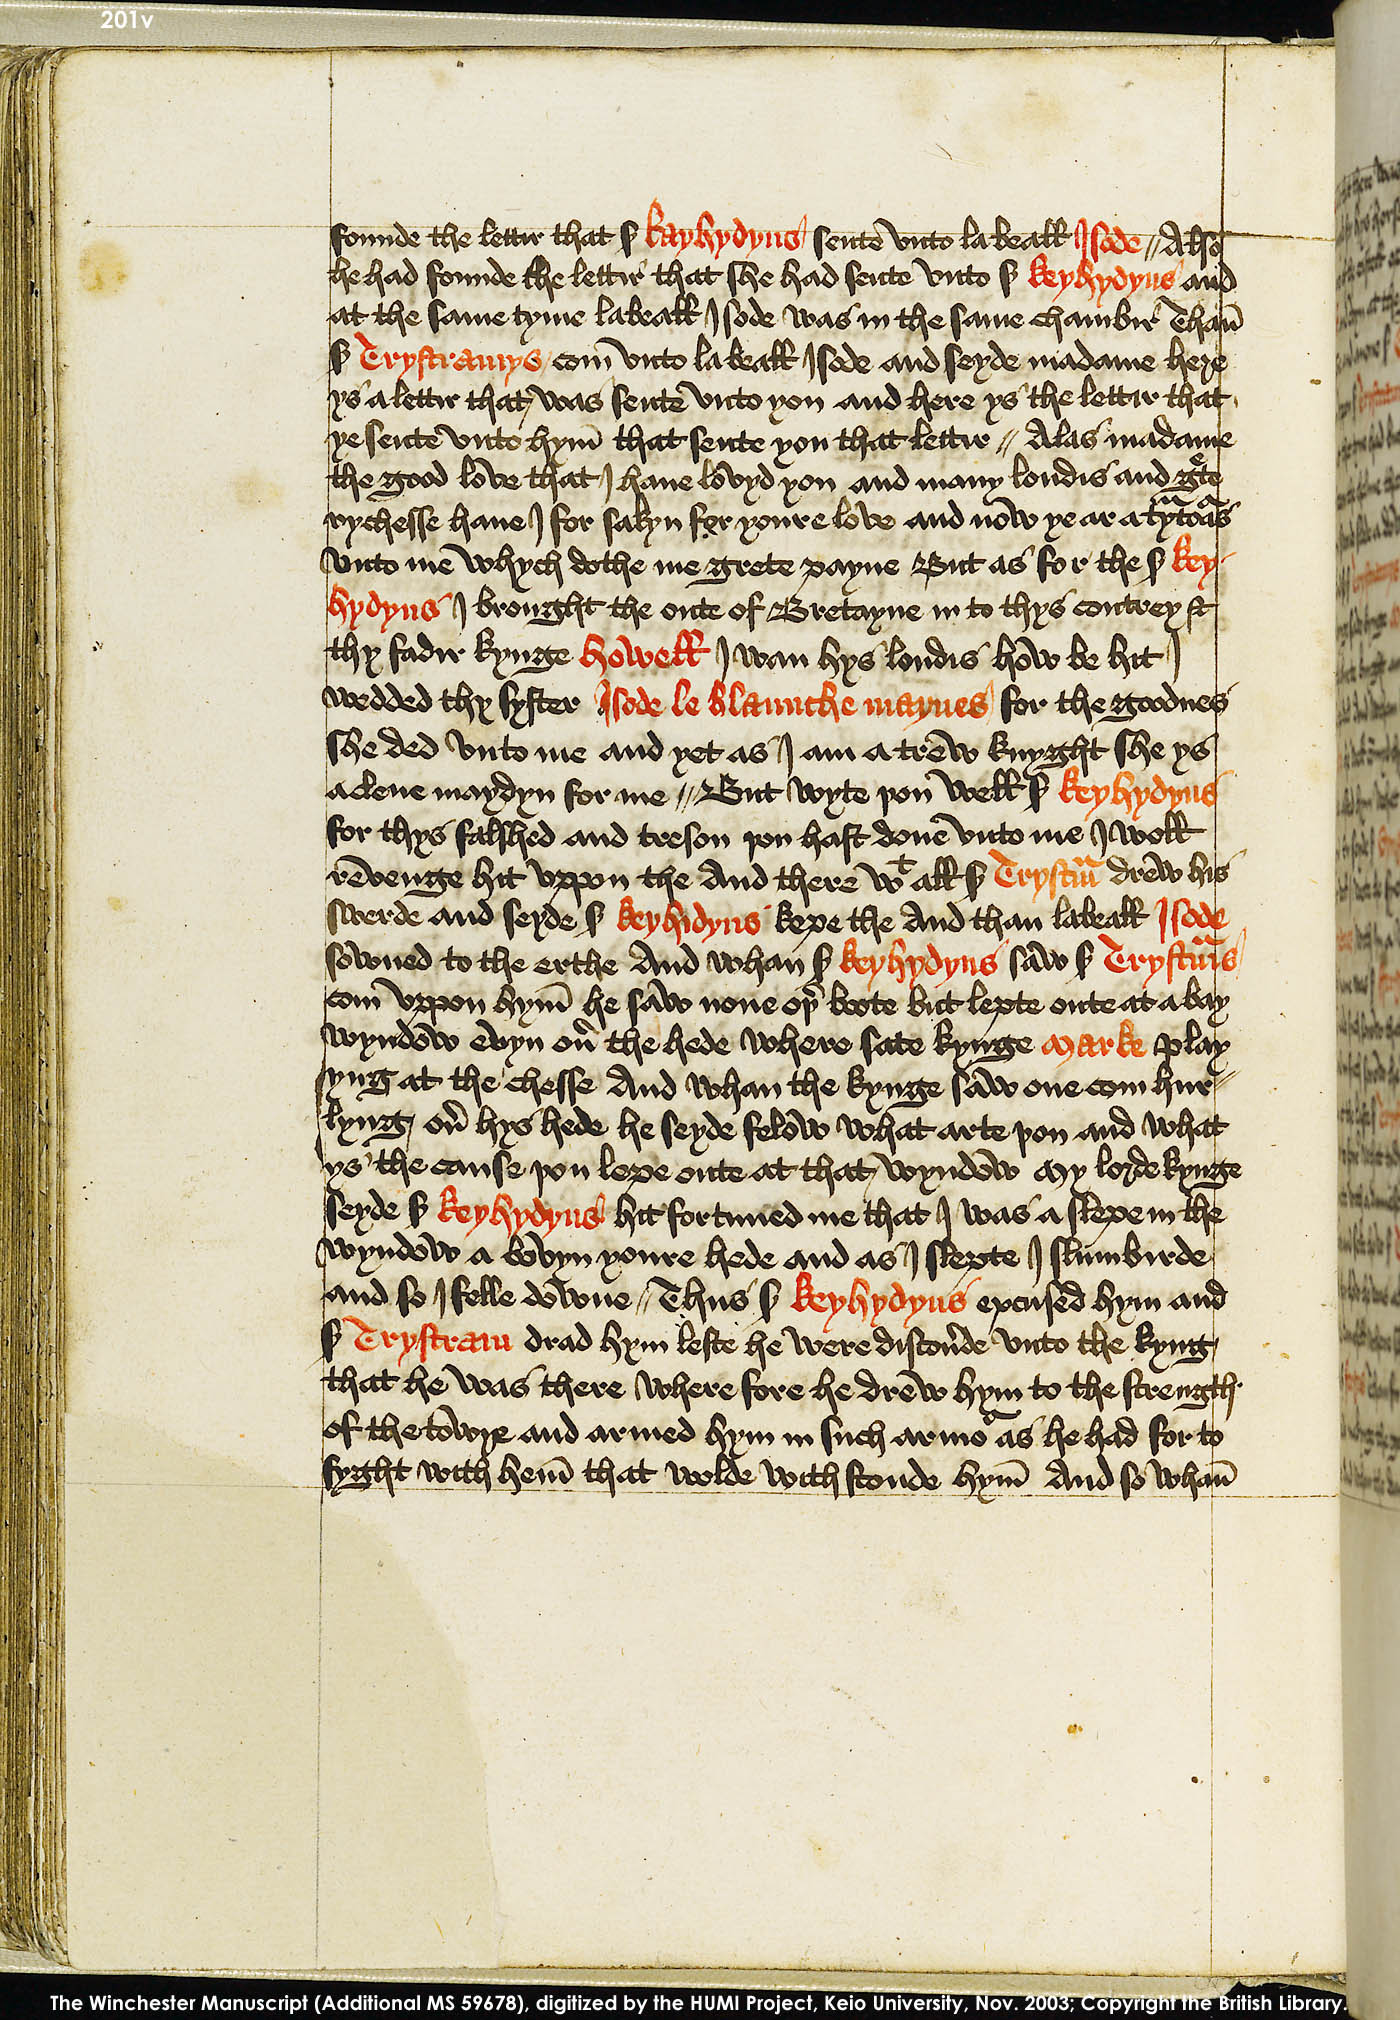 201v
founde the lettir that S kayhydyns sente vnto la beall Isode // Also
he had founde the lettir that she had sente vnto S keyhydyns and
at the same tyme labeall Isode was in the same chambir Than̄
S Trystramys com̄ vnto la beall Isode and seyde madame here
ys a lettir that was sente vnto you and here ys the lettir that
ye sente vnto hym̄ that sente you that lettir // Alas madame
the good love that I haue lovyd you and many londis and gᵉte
rychesse haue I forsakyn for youre love and now ye ar a tᵃytoᵃs
vnto me whych dothe me grete payne But as for the S key
hydyns I brought the oute of Bretayne in to thys contrey &
thy fadir kynge howell I wan hys londis how be hit I
wedded thy syster Isode le blaunche maynes for the goodnes
she ded vnto me and yet as I am a trew knyght she ys
a clene maydyn for me // But wyte þou well S keyhydyns
for thys falshed and treson þou hast done vnto me I woll
revenge hit vppon the And there wᵗ all S Trystᵃm drew his
swerde and seyde S keyhidyns kepe the And than labeall Isode
sowned to the erthe And whan S keyhydyns saw S Trystᵃms
com vppon hym̄ he saw none oþʳ boote but lepte oute at a bay
wyndow evyn ouʳ the hede where sate kynge Marke play
yng at the chesse And whan the kynge saw one com hur //
lyng ouʳ hys hede he seyde felow what arte þou and what
ys the cause þou lepe oute at that wyndow My lorde kynge
seyde S keyhydyns hit fortuned me that I was a slepe in the
wyndow a bovyn youre hede and as I slepte I slumbirde
and so I felle downe // Thus S keyhydyns excused hym and
S Trystram drad hym leste he were discouʳde vnto the kyng
that he was there where fore he drew hym to the strength
of the towre and armed hym in such armoᵃ as he had for to
fyght with hem̄ that wolde with stonde hym̄ And so whan̄
The Winchester Manuscript (Additional MS 59678), digitized by the HUMI Project, Keio University, Nov. 2003; Copyright the British Library.